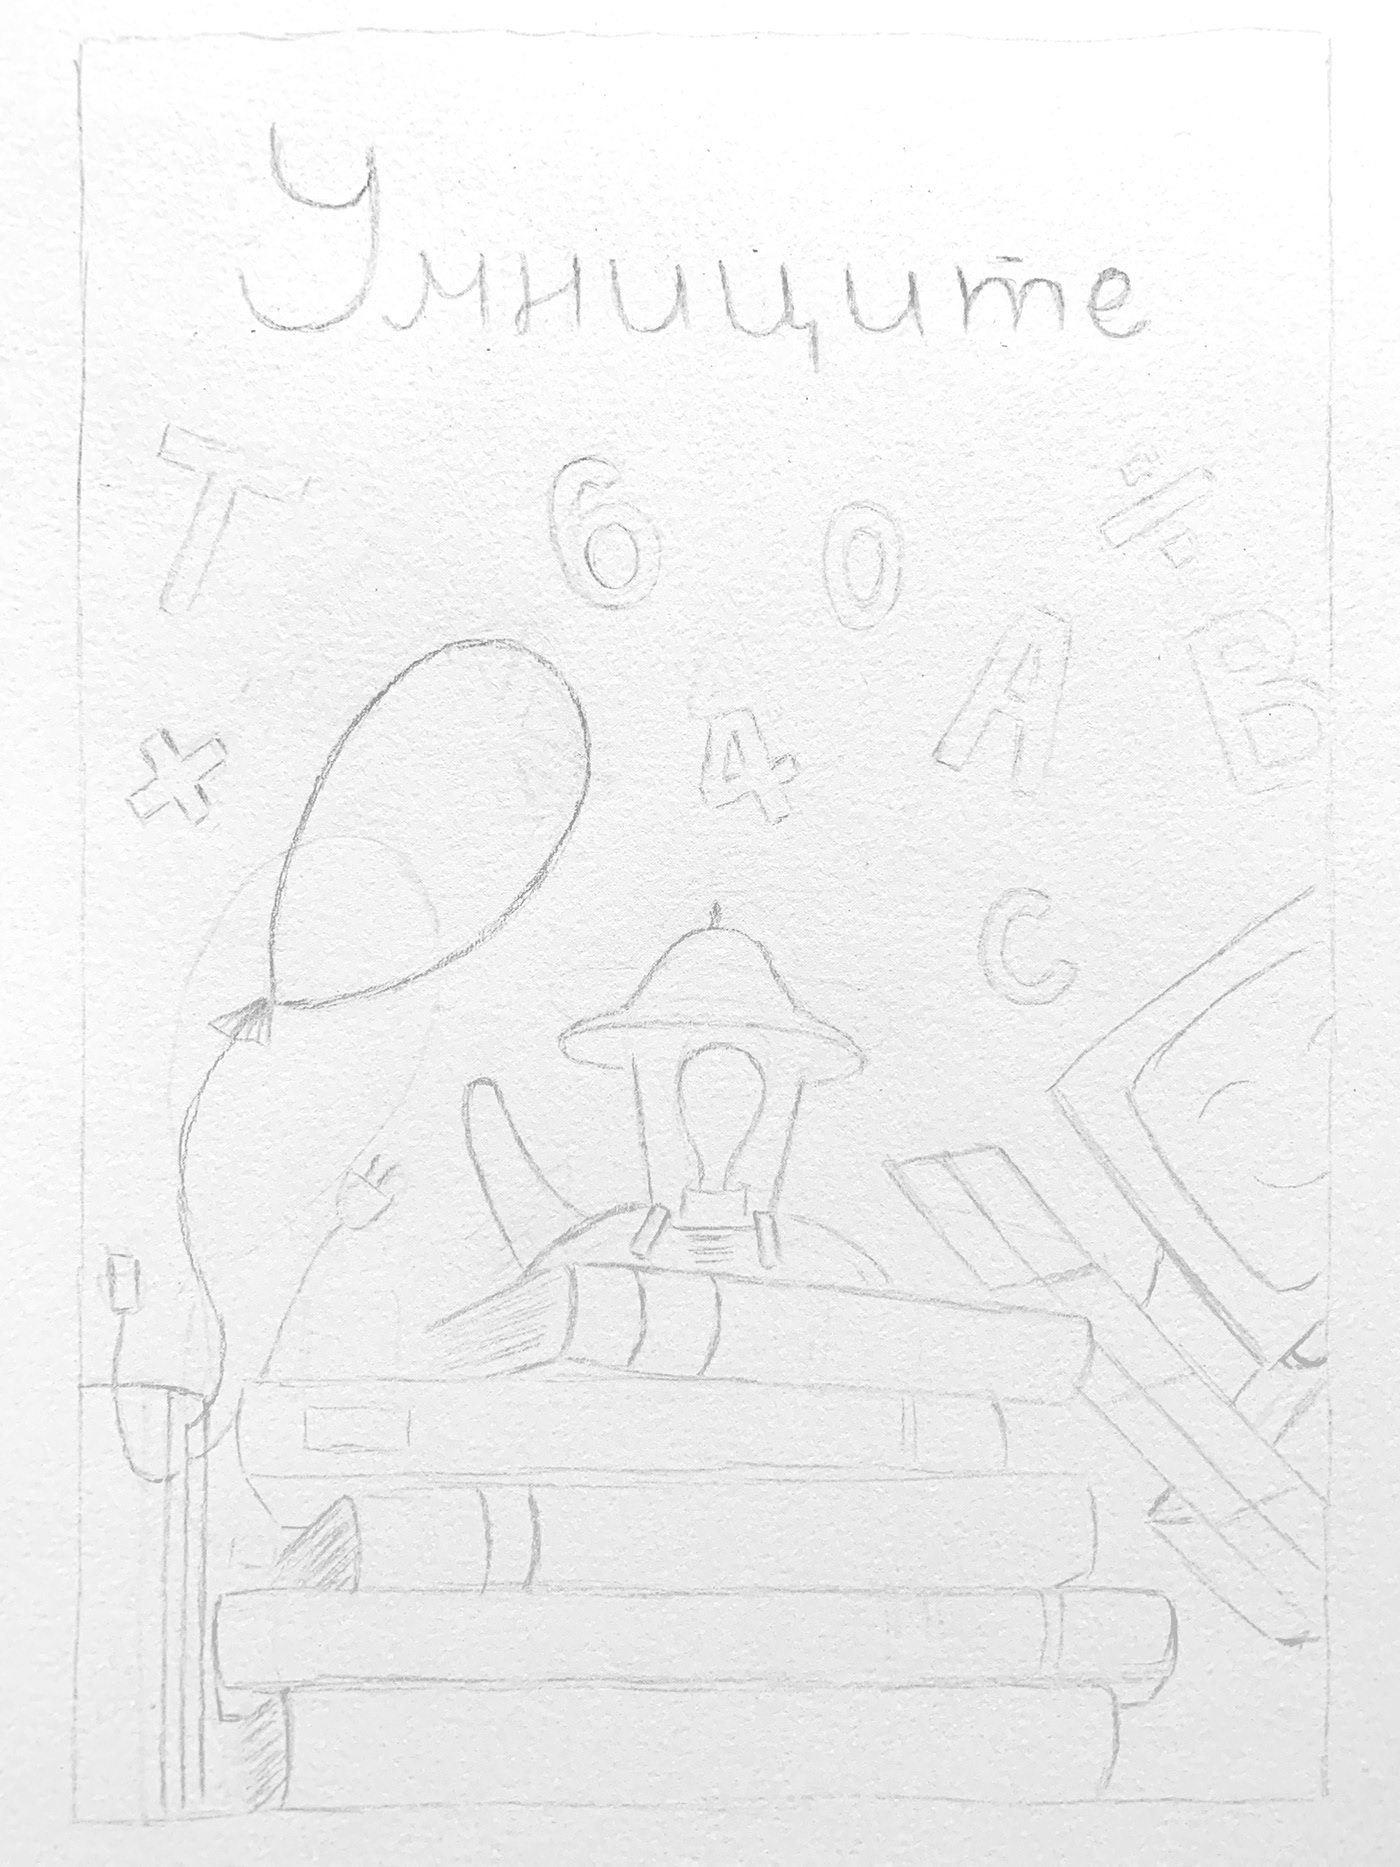 Умниците
T 6 0 ÷
A B
+ 4
C